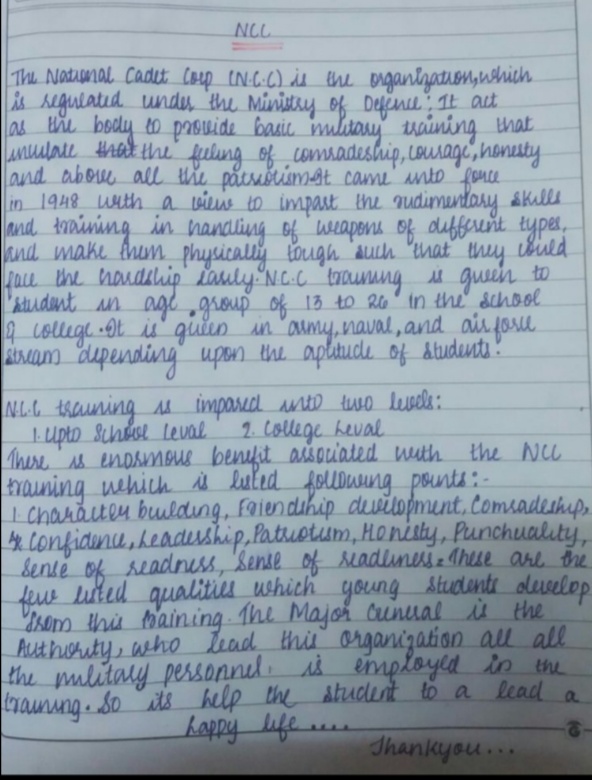 NCC
The National Cadet Corp (N.C.C) is the organization, which
is regulated under the Ministry of Defence: It act
as the body to provide basic military training that
inculate the feeling of comradeship, courage, honesty
and above all the patriotism. It came into force
in 1948 with a view to impart the rudimentary skills
and training in handling of weapons of different types,
and make them physically tough such that they could
face the hardship easily. N.C.C training is given to
student in age group of 13 to 26 in the school
& college. It is given in army, naval, and air force
stream depending upon the aptitude of students.
N.C.C training is impared into two levels:
1. Upto School Leval 2. College Leval
There is enormous benefit associated with the NCC
training which is listed following points:-
1. Character building, Friendship development, Comradeship,
Confidence, Leadership, Patriotism, Honesty, Punchuality,
Sense of readness, Sense of readliness. These are the
few listed qualities which young students develop
from this training. The Major General is the
Authority, who lead this organization all all
the military personnel. is employed in the
training. So its help the student to a lead a
happy life ....
Thankyou...